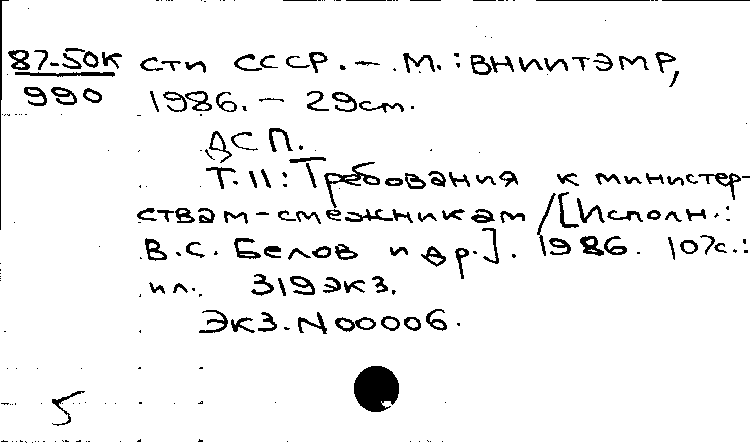 87-50К сти СССР. - М.: ВНИИТЭМР,
990 1986. - 29см.
ДСП.
Т.11: Требования к министер-
ствам-смежникам / [Исполн.:
В.С. Белов и др.]. 1986. 107с.:
ил. 319 экз.
Экз. N00006.
5